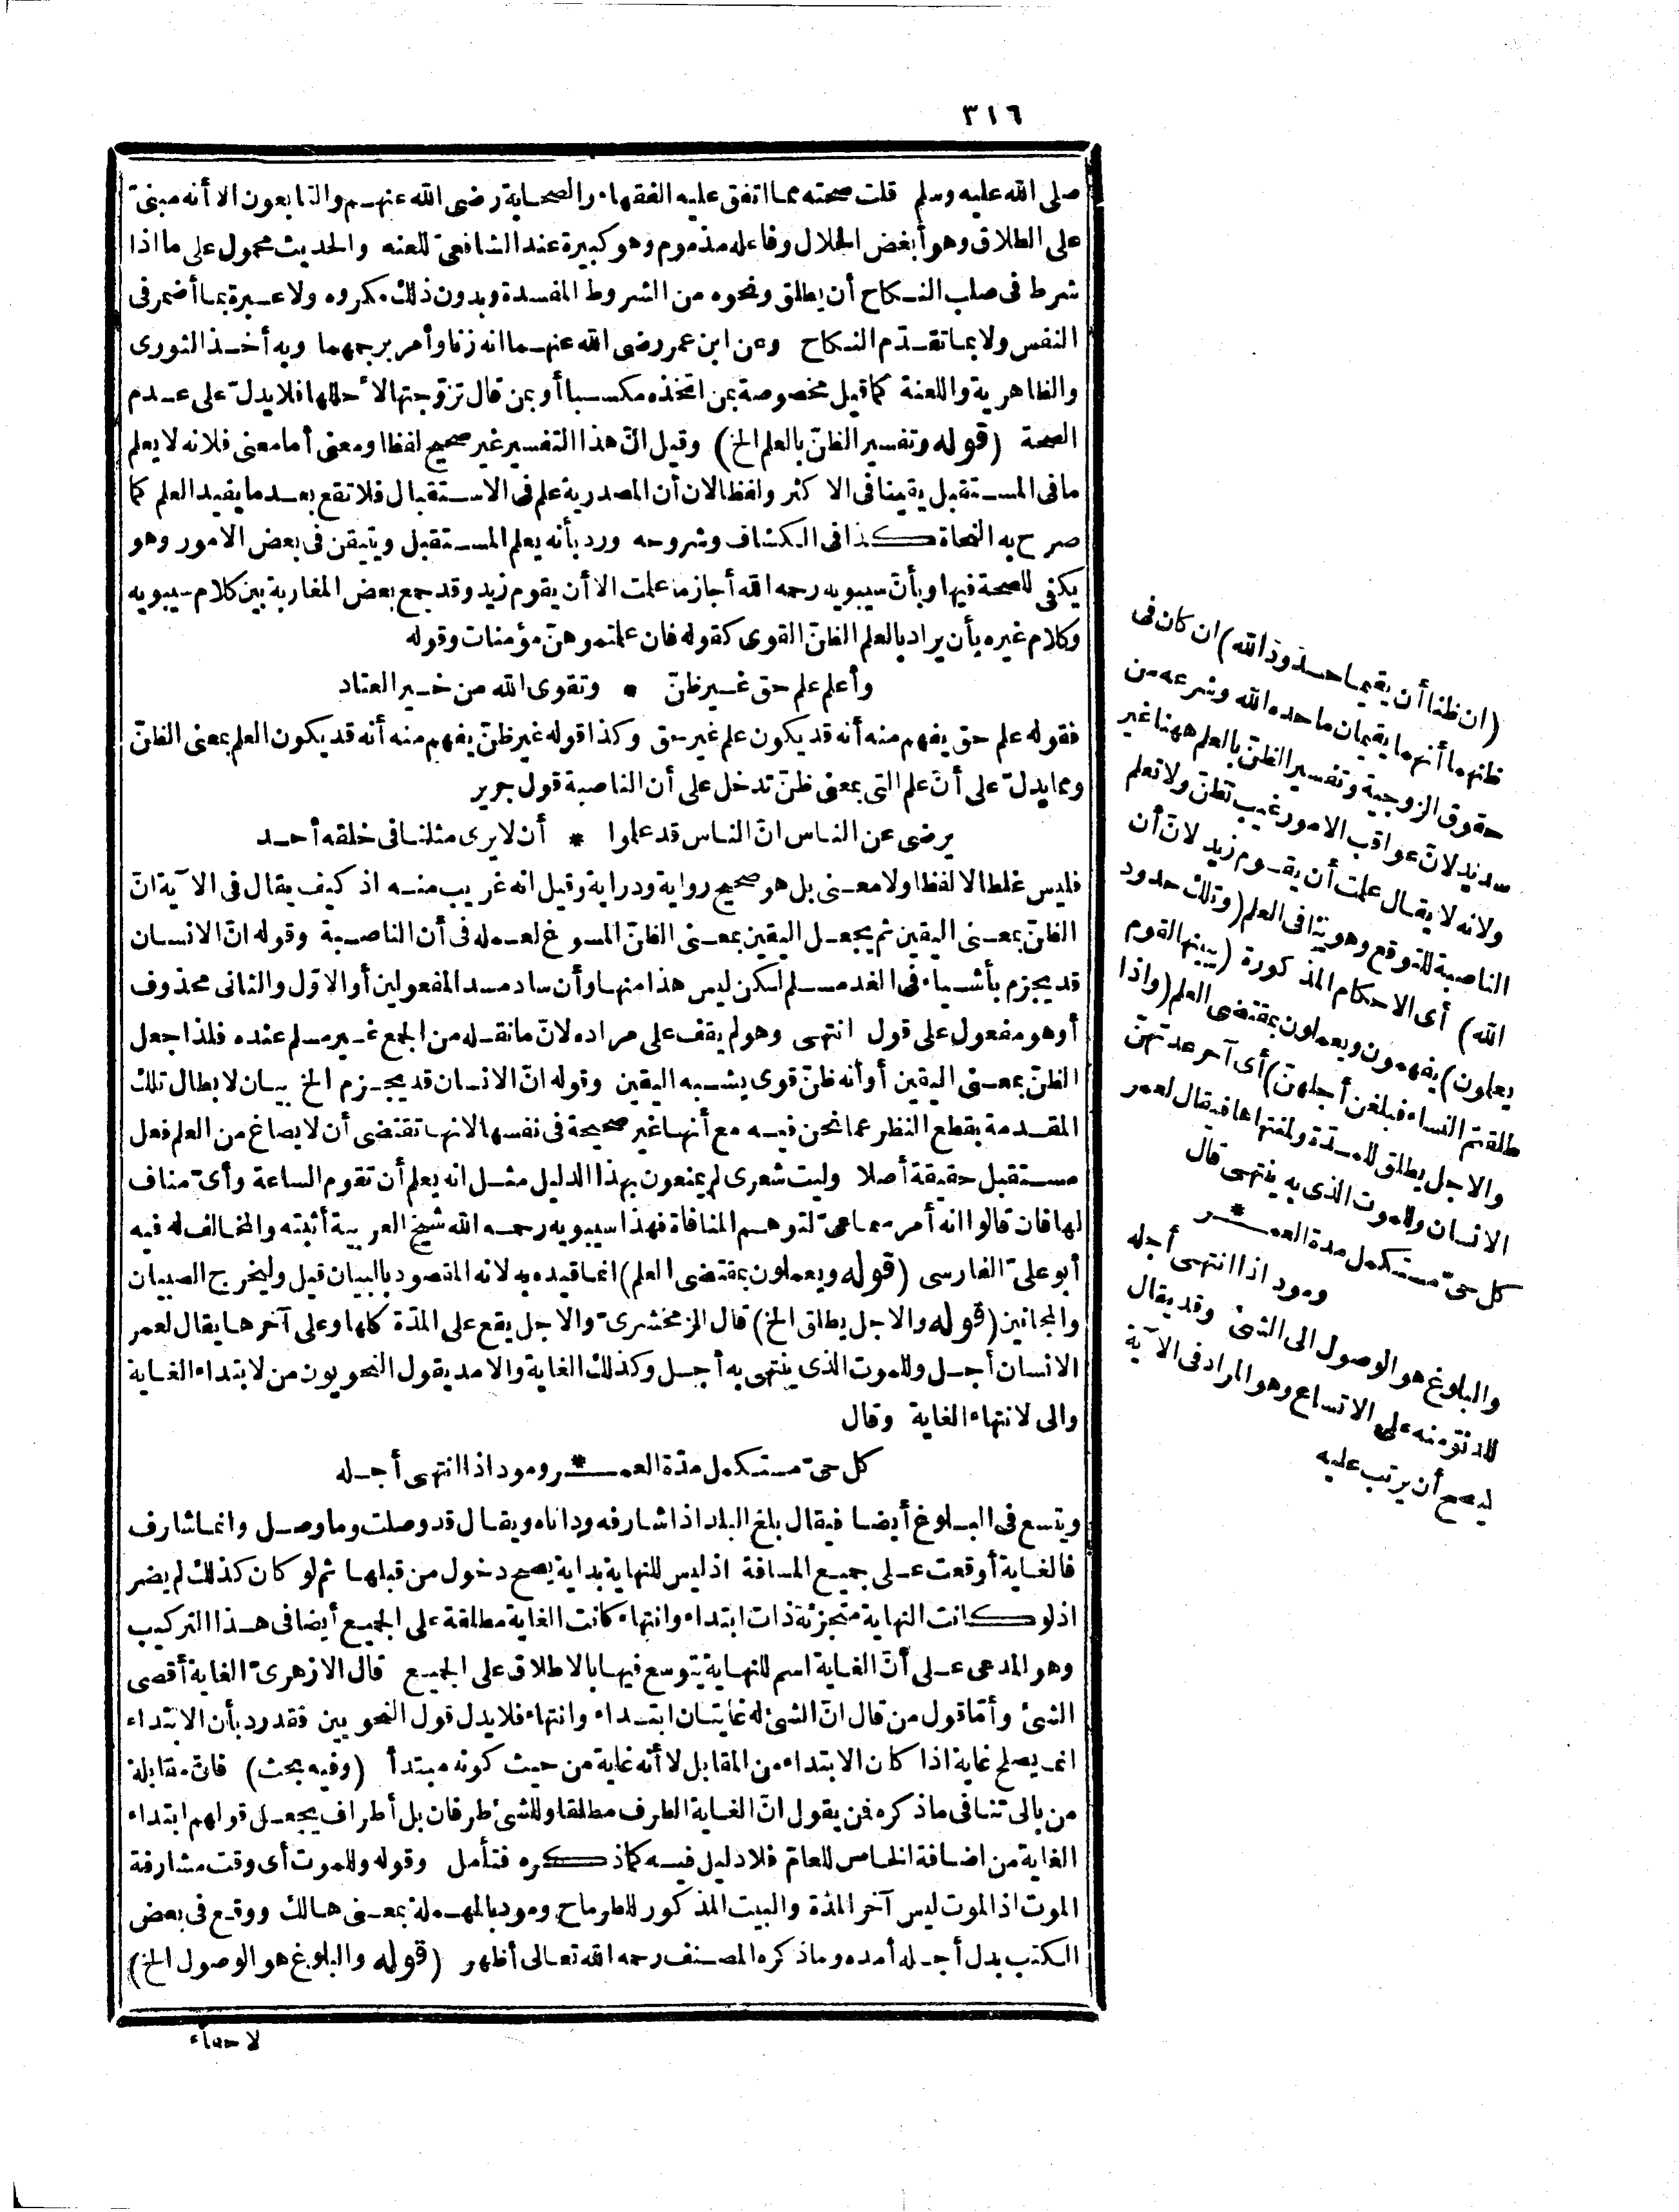 ٣١٦
صلى الله عليه وسلم قلت صحته مما اتفق عليه الفقهاء والصحابة رضى الله عنهم والتابعون الا أنه مبنىّ
على الطلاق وهو أبغض الحلال وفاعله مذموم وهو كبيرة عند الشافعىّ للعنه والحديث محمول على ما اذا
شرط فى صلب النكاح أن يطلق ونحوه من الشروط المفسدة وبدون ذلك مكروه ولا عبرة بما أضمر فى
النفس ولا بما تقدّم النكاح وعن ابن عمر رضى الله عنهما انه زنا وأمر برجمهما وبه أخذ الثورى
والظاهرية واللعنة كما قيل مخصوصة بمن اتخذه مكسبا أو بمن قال تزوّجتها لاحلالها فلا يدلّ على عدم
الصحة (قوله وتفسير الظنّ بالعلم الخ) وقيل انّ هذا التفسير غير صحيح لفظا ومعنى أما معنى فلانه لا يعلم
ما فى المستقبل يقينا فى الاكثر ولفظا لان أن المصدرية علم فى الاستقبال فلا تقع بعد ما يفيد العلم كما
صرح به النحاة كذا فى الكشاف وشروحه ورد بأنه يعلم المستقبل ويتيقن فى بعض الامور وهو
يكفى للصحة فيها وبأنّ سيبويه رحمه الله أجاز ما علمت الا أن يقوم زيد وقد جمع بعض المغاربة بين كلام سيبويه
وكلام غيره بأن يراد بالعلم الظنّ القوى كقوله فان علمتموهنّ مؤمنات وقوله
وأعلم علم حق غير ظنّ * وتقوى الله من خير العتاد
فقوله علم حق يفهم منه أنه قد يكون علم غير حق وكذا قوله غير ظنّ يفهم منه أنه قد يكون العلم بمعنى الظنّ
ومما يدلّ على أنّ علم التى بمعنى ظنّ تدخل على أن الناصبة قول جرير
يرضى عن الناس انّ الناس قد علموا * أن لا يرى مثلنا فى خلقه أحد
فليس غلطا لا لفظا ولا معنى بل هو صحيح رواية ودراية وقيل انه غريب منه اذ كيف يقال فى الآية انّ
الظنّ بمعنى اليقين ثم يجعل اليقين بمعنى الظنّ المسوغ لعمله فى أن الناصبة وقوله انّ الانسان
قد يجزم بأشياء فى الغد مسلم لكن ليس هذا منها وأن ساد مسد المفعولين أو الاوّل والثانى محذوف
أو هو مفعول على قول انتهى وهو لم يقف على مراده لانّ ما نقله من الجمع غير مسلم عنده فلذا جعل
الظنّ بمعنى اليقين أو أنه ظنّ قوى يشبه اليقين وقوله انّ الانسان قد يجزم الخ بيان لابطال تلك
المقدمة بقطع النظر عما نحن فيه مع أنها غير صحيحة فى نفسها لانها تقتضى أن لا يصاغ من العلم فعل
مستقبل حقيقة أصلا وليت شعرى لم يمنعون بهذا الدليل مثل انه يعلم أن تقوم الساعة وأىّ مناف
لها فان قالوا انه أمر سماعىّ لتوهم المنافاة فهذا سيبويه رحمه الله شيخ العربية أثبته والمخالف له فيه
أبو علىّ الفارسى (قوله ويعملون بمقتضى العلم) انما قيده به لانه المقصود بالبيان قيل وليخرج الصبيان
والمجانين (قوله والاجل يطلق الخ) قال الزمخشرىّ والاجل يقع على المدّة كلها وعلى آخرها يقال لعمر
الانسان أجل وللموت الذى ينتهى به أجل وكذلك الغاية والامد يقول النحويون من لابتداء الغاية
والى لانتهاء الغاية وقال
كل حىّ مستكمل مدّة العمـ * ـر ومود اذا انتهى أجله
ويتسع فى البلوغ أيضا فيقال بلغ البلد اذا شارفه وداناه ويقال قد وصلت وما وصل وانما شارف
فالغاية أوقعت على جميع المسافة اذ ليس للنهاية بداية يصح دخول من قبلها ثم لو كان كذلك لم يضر
اذ لو كانت النهاية متجزئة ذات ابتداء وانتهاء كانت الغاية مطلقة على الجميع أيضا فى هذا التركيب
وهو المدعى على أنّ الغاية اسم للنهاية يتوسع فيها بالاطلاق على الجميع قال الازهرىّ الغاية أقصى
الشئ وأمّا قول من قال انّ الشئ له غايتان ابتداء وانتهاء فلا يدل قول النحويين فقد رد بأن الابتداء
انما يصلح غاية اذا كان الابتداء من المقابل لا أنه غاية من حيث كونه مبتدأ (وفيه بحث) فانّ مقابلة
من بالى تنافى ما ذكره فمن يقول انّ الغاية الطرف مطلقا وللشئ طرفان بل أطراف يجعل قولهم ابتداء
الغاية من اضافة الخاص للعامّ فلا دليل فيه كما ذكره فتأمل وقوله وللموت أى وقت مشارفة
الموت اذ الموت ليس آخر المدّة والبيت المذكور للطرماح ومود بالمهملة بمعنى هالك ووقع فى بعض
الكتب بدل أجله أمده وما ذكره المصنف رحمه الله تعالى أظهر (قوله والبلوغ هو الوصول الخ)
(ان ظنا أن يقيما حدود الله) ان كان فى
ظنهما أنهما يقيمان ما حده الله وشرعه من
حقوق الزوجية وتفسير الظنّ بالعلم ههنا غير
سديد لانّ عواقب الامور غيب تظنّ ولا تعلم
ولانه لا يقال علمت أن يقوم زيد لانّ أن
الناصبة للتوقع وهو ينافى العلم (وتلك حدود
الله) أى الاحكام المذكورة (يبينها لقوم
يعلمون) يفهمون ويعملون بمقتضى العلم (واذا
طلقتم النساء فبلغن أجلهنّ) أى آخر عدّتهنّ
والاجل يطلق للمدّة ولمنتهاها فيقال لعمر
الانسان وللموت الذى به ينتهى قال
كل حىّ مستكمل مدة العمـ * ـر
ومود اذا انتهى أجله
والبلوغ هو الوصول الى الشئ وقد يقال
للدنوّ منه على الاتساع وهو المراد فى الآية
ليصح أن يرتب عليه